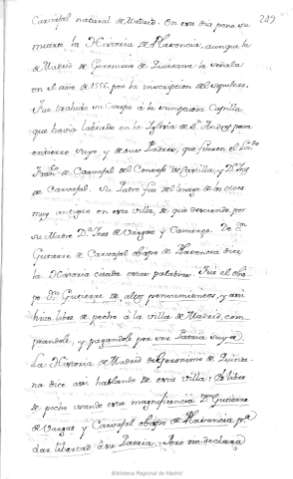 249
Carvajal natural de Madrid. En este dia pone su
muerte la Historia de Plasencia, aunque la
de Madrid de Geronimo de Quintana la señala
en el año de 1556. por la inscripcion del sepulcro.
Fue trahido su cuerpo a la sumptuosa Capilla
que havia labrado en la Iglesia de Sn. Andres para
entierro suyo y de sus Padres, que fueron el Licdo
Franco. de Carvajal del Consejo de Castilla, y Da. Ines
de Carvajal. Su Padre fue del linage de los de este
muy antiguo en esta villa, de quien desciende por
su Madre Da. Ines de Vargas y Camargo. De Dn.
Gutierre de Carvajal obispo de Plasencia dice
la Historia citada estas palabras. Fue el obis-
po Dn. Gutierre de altos pensamientos, y asi
hizo libre de pecho á la villa de Madrid, com-
prandole, y pagandole por ser Patria suya.
La Historia de Madrid de Geronimo de Quinta-
na dice asi hablando de esta villa: Es libre
de pecho usando esta magnificencia Dn. Gutierre
de Vargas y Carvajal obispo de Plasencia pa.
dar libertad á su Patria. Pero no declara
Biblioteca Regional de Madrid